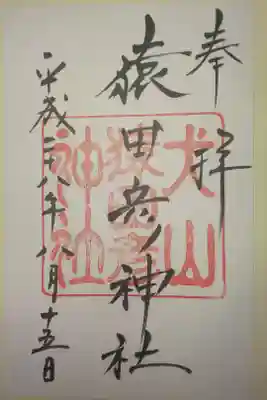 奉拝
猿田彦神社
平成二十八年八月十五日
犬山
猿田彦
神社